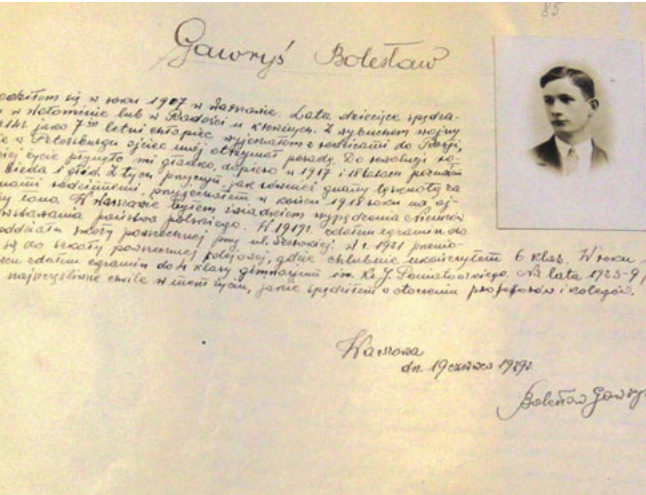 85
Gawryś Bolesław
się w roku 1907 w Warszawie. Lata dziecięce spędza-
w Wołominie lub w Radości u krewnych. Z wybuchem wojny
jako 7 letni chłopiec wyjechałem z rodzicami do Rosji,
w Petersburgu ojciec mój otrzymał posadę. Do rewolucji ro-
życie płynęło mi gładko, dopiero w 1917 i 18 latach poznałem
bieda i głód. Z tych przyczyn, jak również gnany tęsknotą za
rodzinnemi, przyjechałem w końcu 1918 roku na oj-
łona. W Warszawie byłem świadkiem wypędzenia Niemców
powstania państwa polskiego. W 1919 r. zdałem egzamin do
oddziału szkoły powszechnej przy ul. W r. 1921 przenio-
się do szkoły powszechnej kolejowej, gdzie chlubnie ukończyłem 6 klas. W roku
zdałem egzamin do 4 klasy gimnazjum im. Ks. J. Poniatowskiego. Na lata 1923-9
najszczęśliwsze chwile w mem życiu, jakie spędziłem w otoczeniu profesorów i kolegów.
Warszawa
dn. 19 czerwca 1929 r.
Bolesław Gawryś